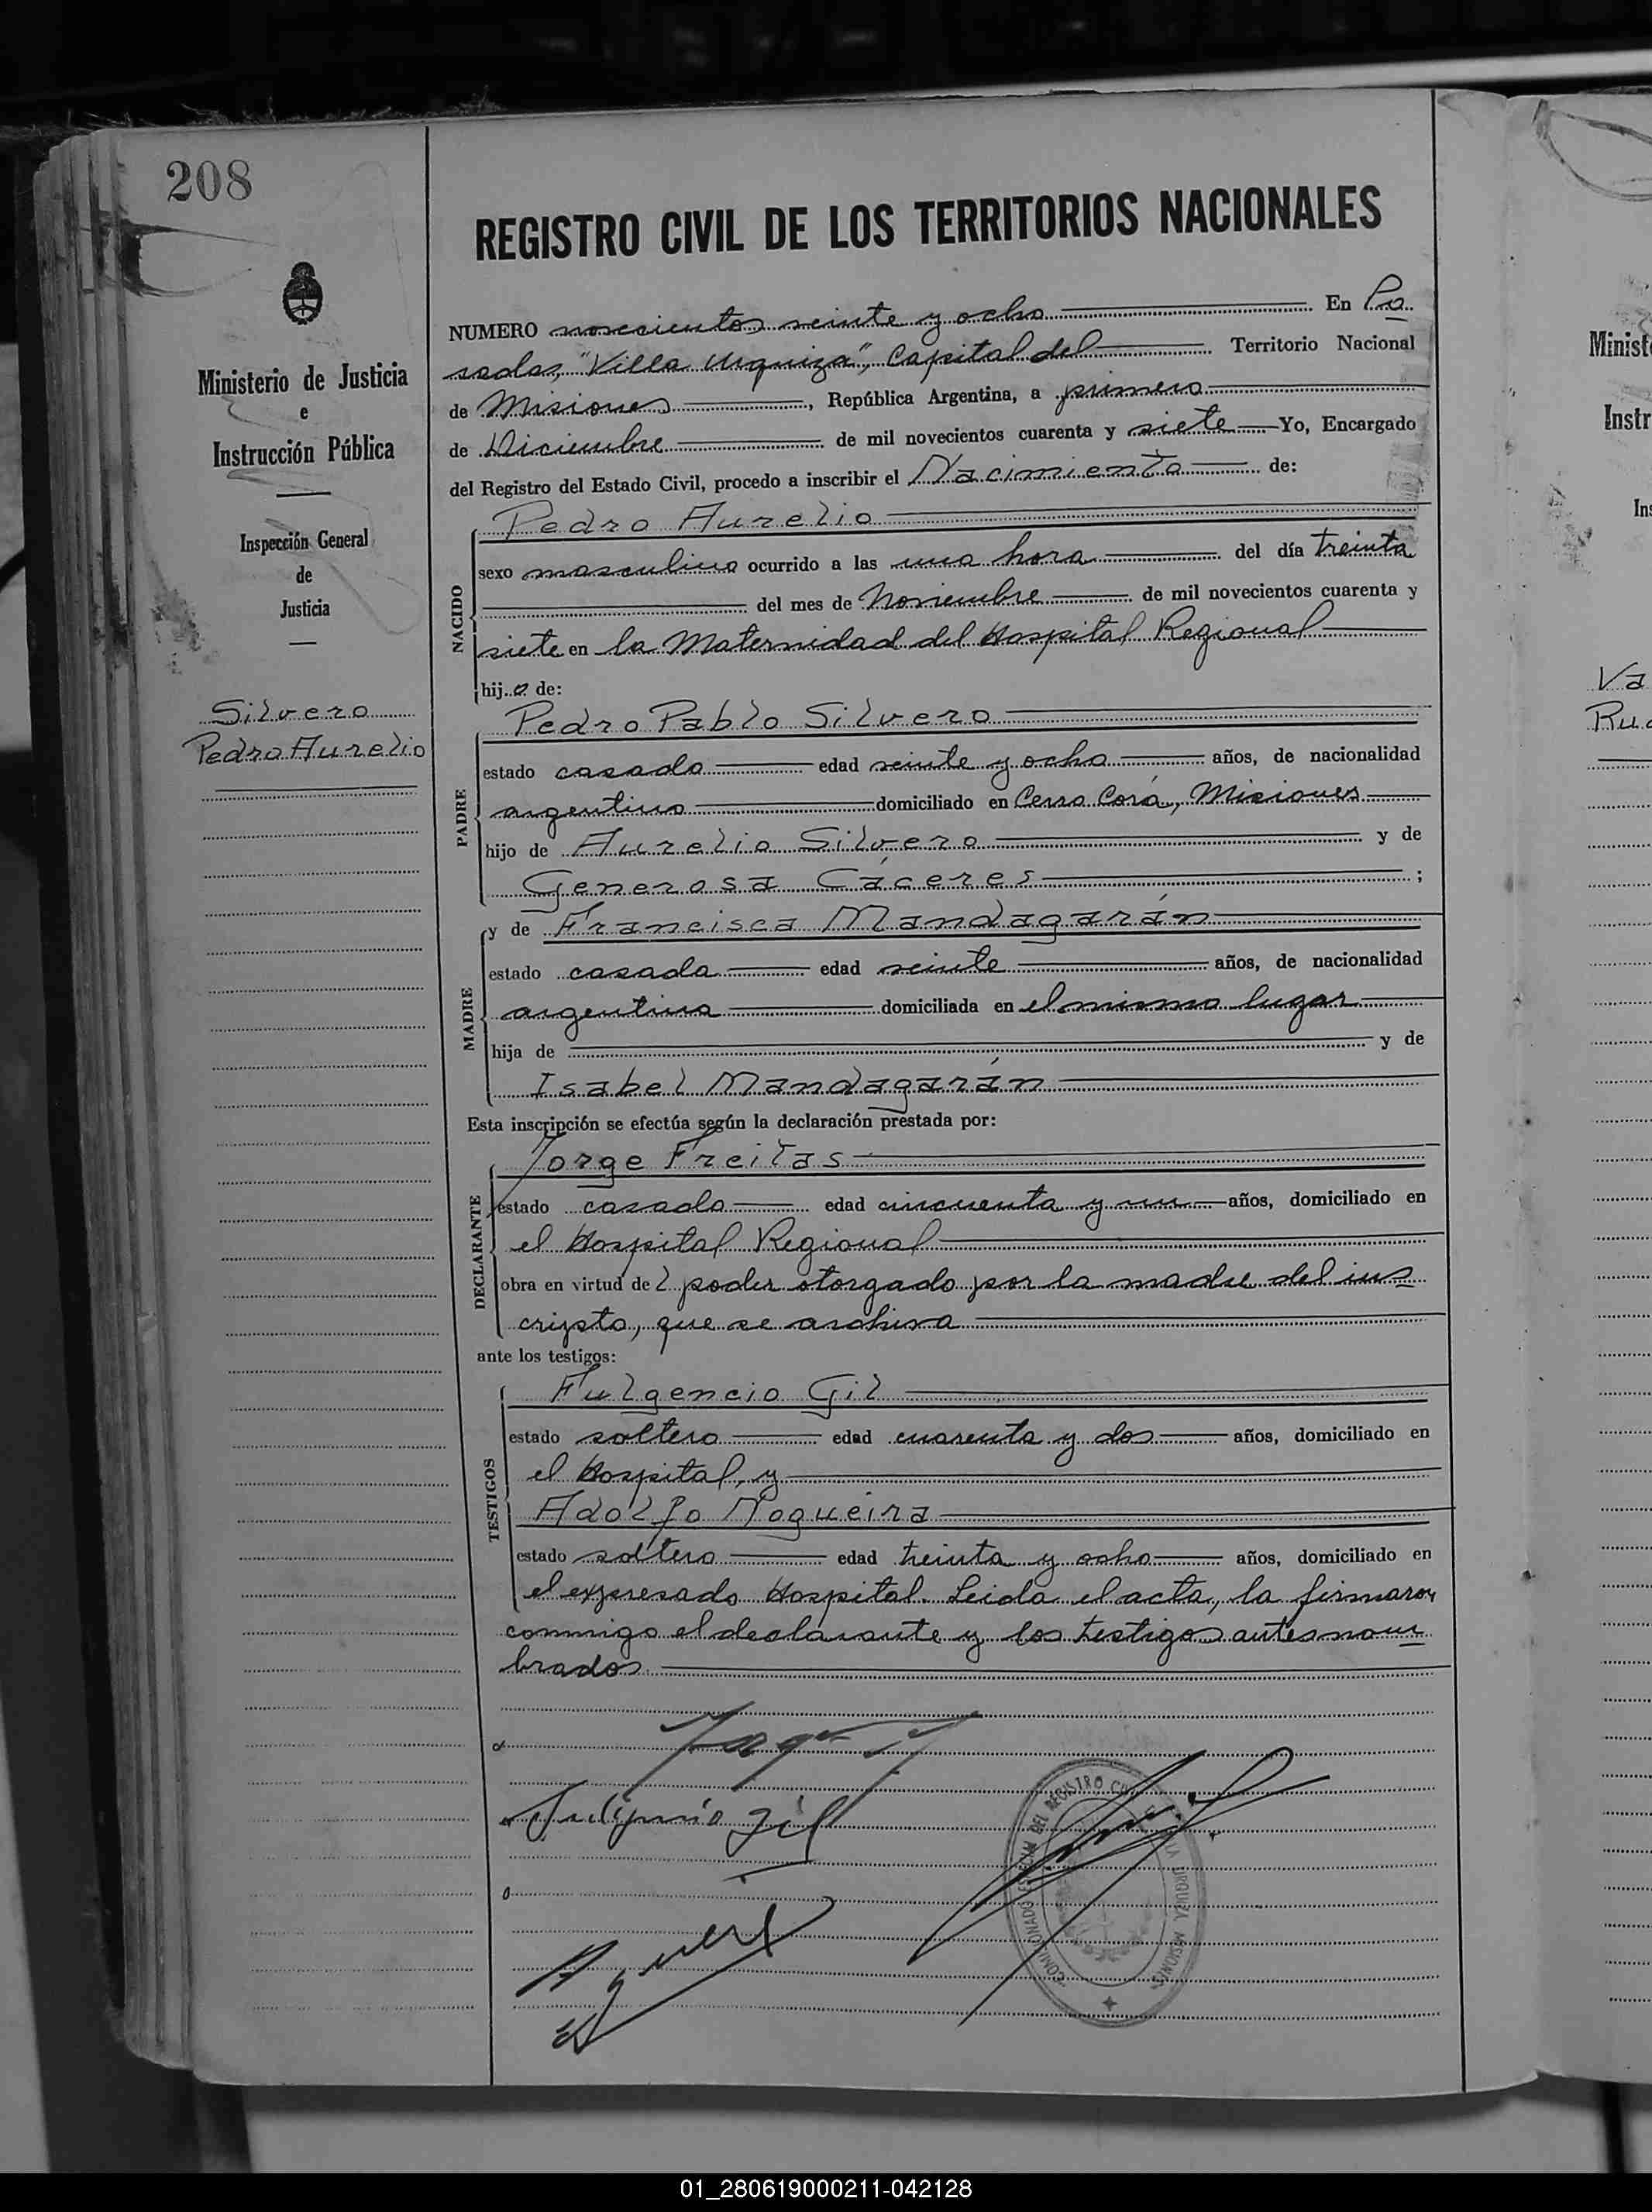 208
REGISTRO CIVIL DE LOS TERRITORIOS NACIONALES
Ministerio de Justicia
e
Instrucción Pública
Inspección General
de
Justicia
Silvero
Pedro Aurelio
NUMERO novecientos veinte y ocho En Po
sadas, "Villa Urquiza", Capital del Territorio Nacional
de Misiones, República Argentina, a primero
de Diciembre de mil novecientos cuarenta y siete Yo, Encargado
del Registro del Estado Civil, procedo a inscribir el Nacimiento de:
NACIDO
Pedro Aurelio
sexo masculino ocurrido a las una hora del día treinta
del mes de Noviembre de mil novecientos cuarenta y
siete en la Maternidad del Hospital Regional
hijo de:
PADRE
Pedro Pablo Silvero
estado casado edad veinte y ocho años, de nacionalidad
argentino domiciliado en Cerro Corá, Misiones
hijo de Aurelio Silvero y de
Generosa Cáceres;
MADRE
y de Francisca Mandagarán
estado casada edad veinte años, de nacionalidad
argentina domiciliada en el mismo lugar
hija de y de
Isabel Mandagarán
Esta inscripción se efectúa según la declaración prestada por:
DECLARANTE
Jorge Freitas
estado casado edad cincuenta y un años, domiciliado en
el Hospital Regional
obra en virtud del poder otorgado por la madre del ins
cripto, que se archiva
ante los testigos:
TESTIGOS
Fulgencio Gil
estado soltero edad cuarenta y dos años, domiciliado en
el Hospital, y
Adolfo Nogueira
estado soltero edad treinta y ocho años, domiciliado en
el expresado Hospital. Leida el acta, la firmaron
conmigo el declarante y los testigos antes nom
brados.
Fulgencio Gil
COMISIONADO ESPECIAL DEL REGISTRO CIVIL VILLA URQUIZA MISIONES
Minist
Instr
Ins
Va
Ru
01_280619000211-042128